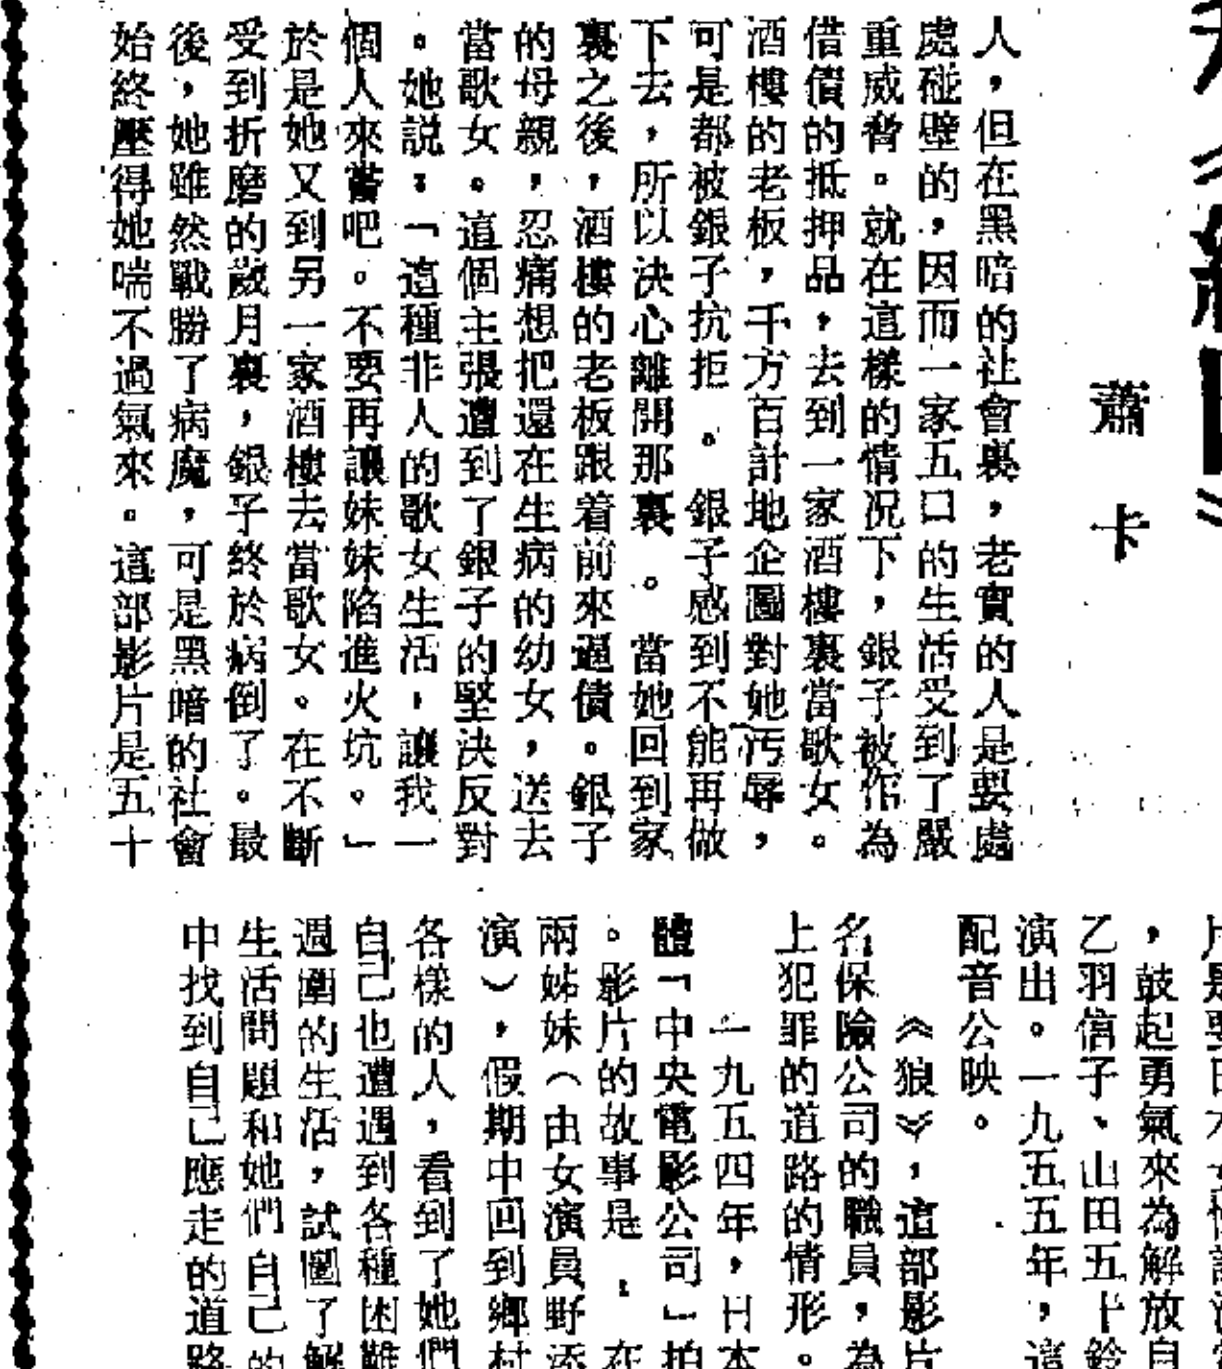 蕭卡
人，但在黑暗的社會裏，老實的人是要處
處碰壁的，因而一家五口的生活受到了嚴
重威脅。就在這樣的情况下，銀子被作為
借債的抵押品，去到一家酒樓裏當歌女。
酒樓的老板，千方百計地企圖對她污辱，
可是都被銀子抗拒。銀子感到不能再做
下去，所以決心離開那裏。當她回到家
裏之後，酒樓的老板跟着前來逼債。銀子
的母親，忍痛想把還在生病的幼女，送去
當歌女。這個主張遭到了銀子的堅決反對
。她説：「這種非人的歌女生活，讓我一
個人來嘗吧。不要再讓妹妹陷進火坑。」
於是她又到另一家酒樓去當歌女。在不斷
受到折磨的歲月裏，銀子終於病倒了。最
後，她雖然戰勝了病魔，可是黑暗的社會
始終壓得她喘不過氣來。這部影片是五十
，鼓起勇氣來為解放自
乙羽信子、山田五十鈴
演出。一九五五年，這
配音公映。
《狼》，這部影片
名保險公司的職員，為
上犯罪的道路的情形。
一九五四年，日本
體「中央電影公司」拍
。影片的故事是：在
兩姊妹（由女演員野添
演），假期中回到鄉村
各樣的人，看到了她們
自己也遭遇到各種困難
週圍的生活，試圖了解
生活問題和她們自己的
中找到自己應走的道路